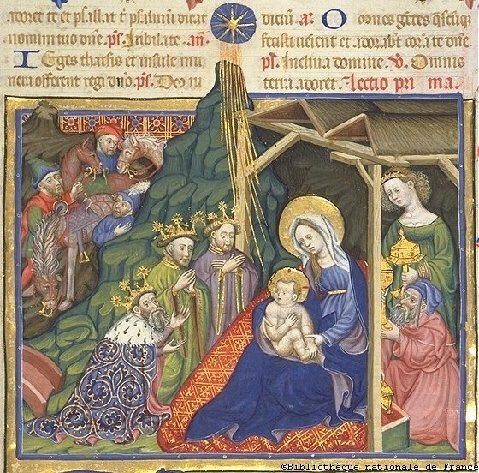 adoret te et psallat t̄ psalmū dicat
nomini tuo dn̄e. ps̄. Iubilate. an̄.
Reges tharsis et insule mu
nera offerent regi dn̄o. ps̄. Deus
a. Omnes gētes
fecisti venient et adorabt corā te dn̄e.
ps̄. Inclina domine. V. Omnis
terra adoret. Lectio prima.
©Bibliothèque nationale de France